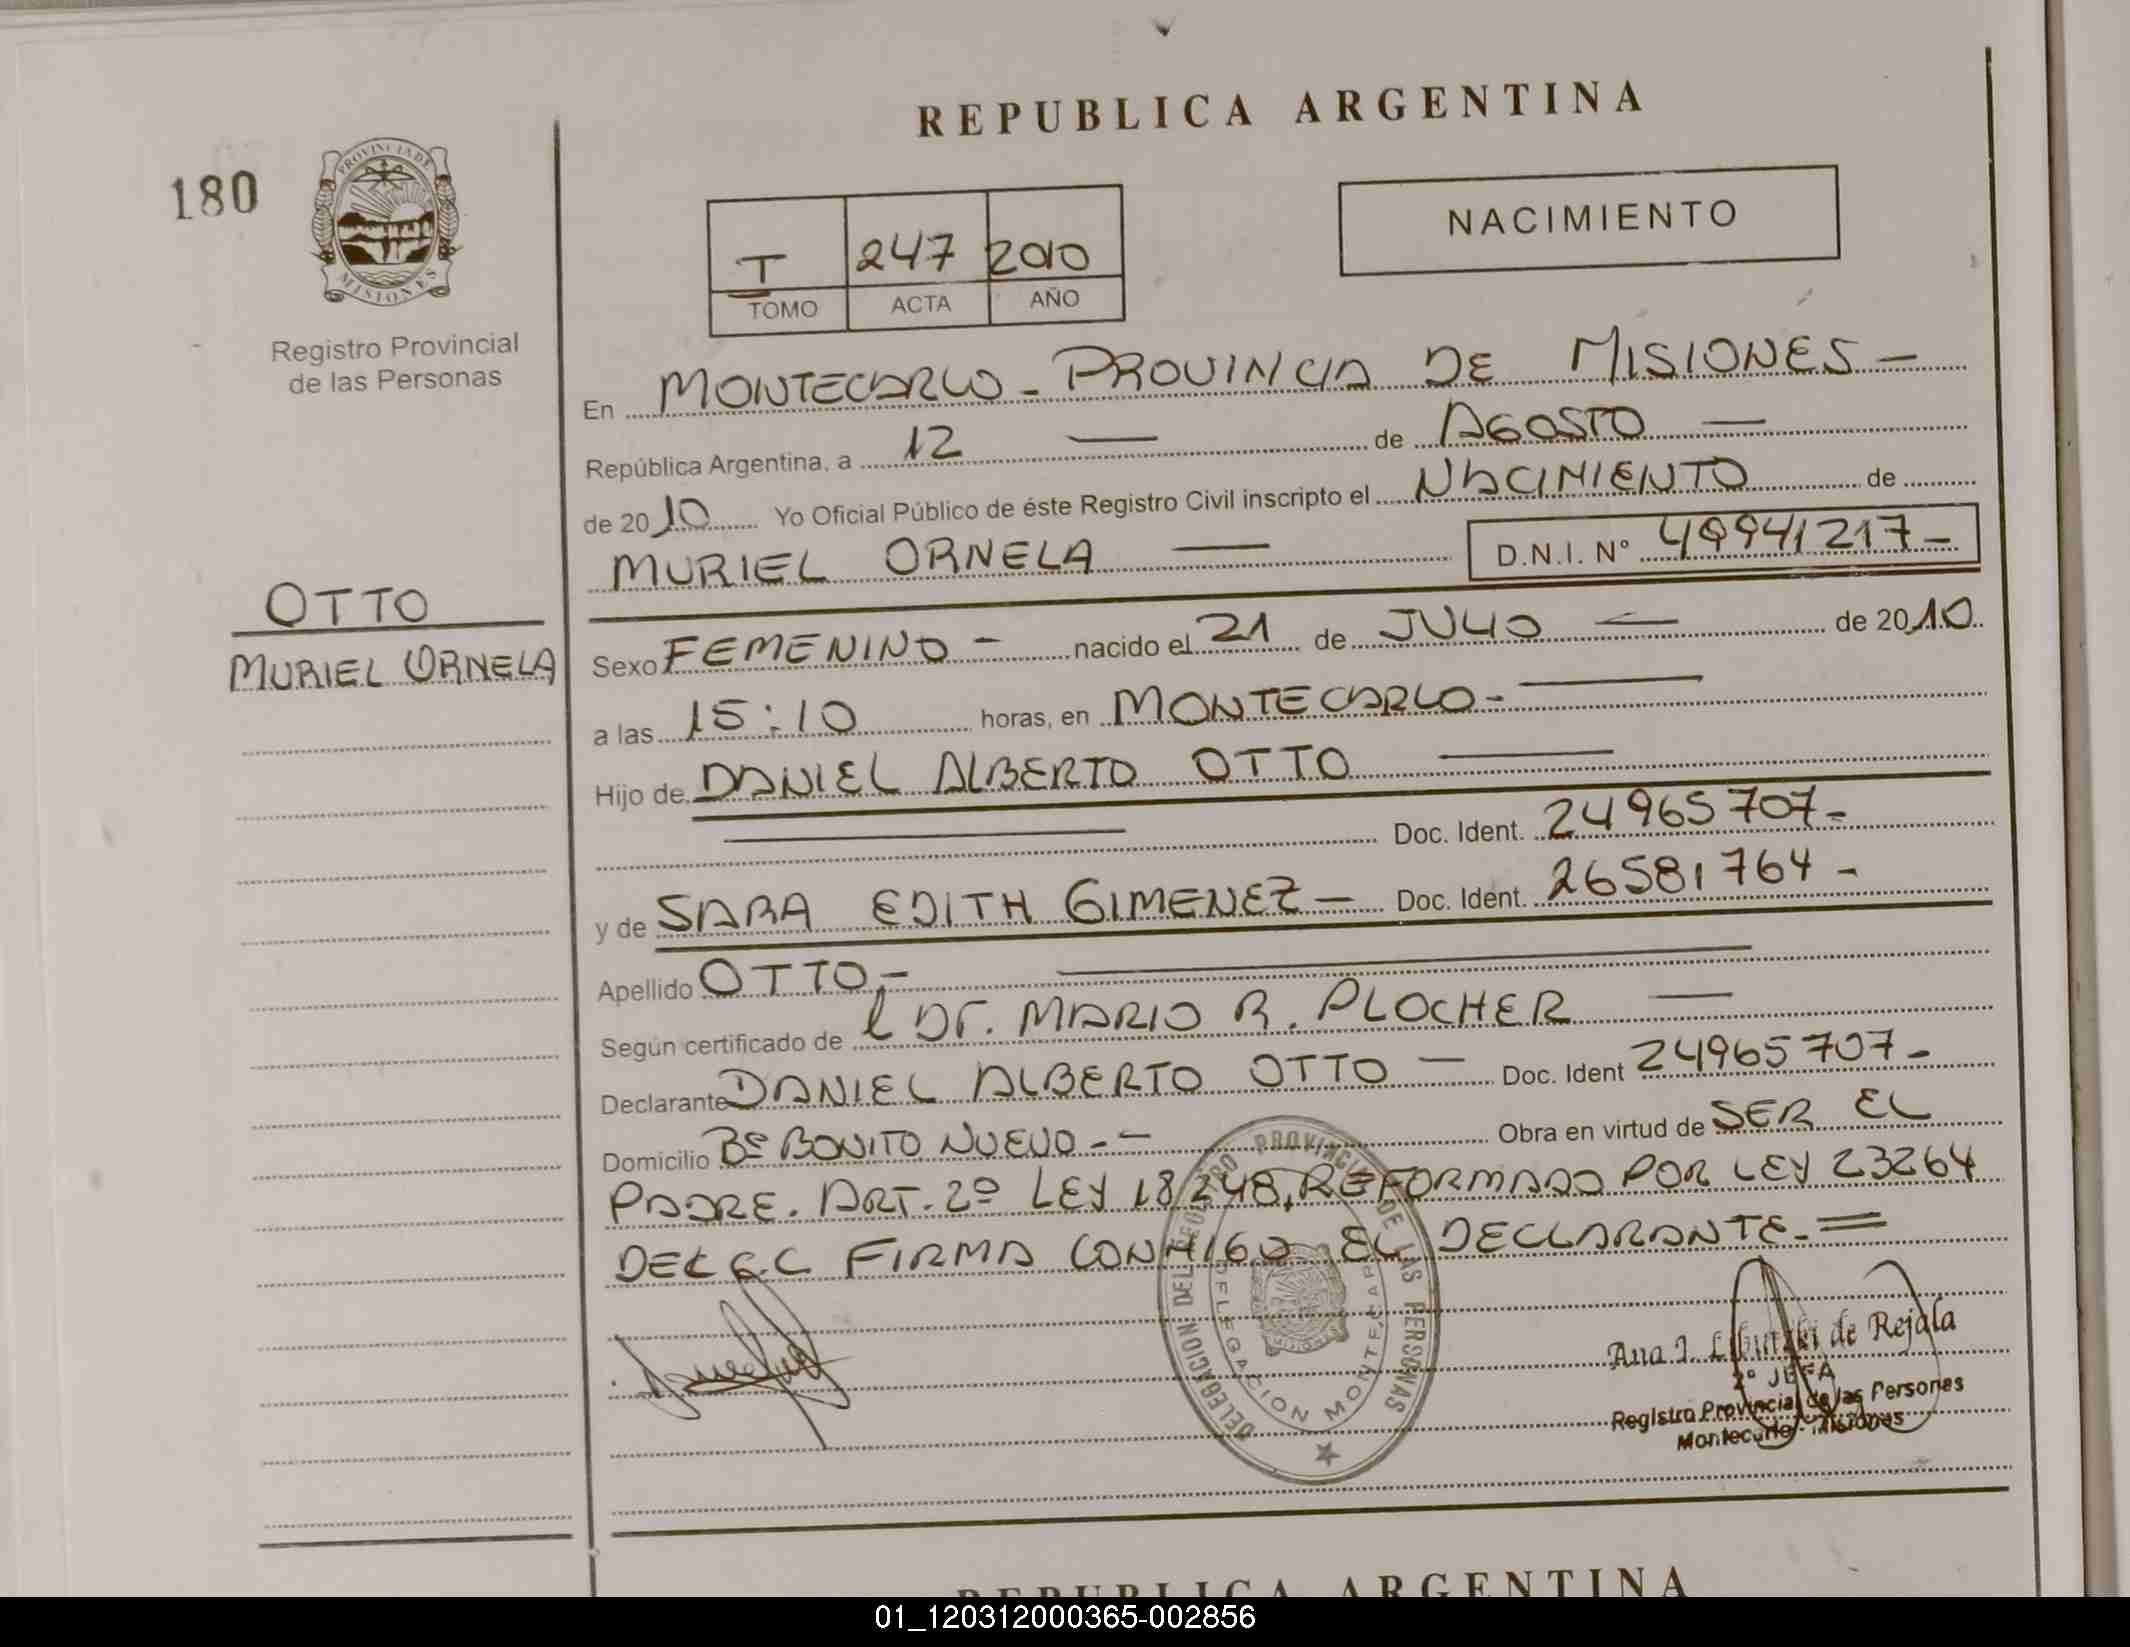 REPUBLICA ARGENTINA
180
PROVINCIA DE
MISIONES
Registro Provincial
de las Personas
T 247 2010
TOMO ACTA AÑO
NACIMIENTO
En MONTECARLO - PROVINCIA DE MISIONES -
República Argentina, a 12 — de AGOSTO —
de 2010 Yo Oficial Público de éste Registro Civil inscripto el NACIMIENTO de
MURIEL ORNELA — D.N.I. Nº 49941217-
OTTO
MURIEL ORNELA
Sexo FEMENINO - nacido el 21 de JULIO — de 2010
a las 15:10 horas, en MONTECARLO -
Hijo de DANIEL ALBERTO OTTO —
Doc. Ident. 24965707-
y de SARA EDITH GIMENEZ - Doc. Ident. 26581764 -
Apellido OTTO -
Según certificado de l Dr. MARIO R. PLOCHER —
Declarante DANIEL ALBERTO OTTO - Doc. Ident 24965707-
Domicilio Bº BONITO NUEVO - - Obra en virtud de SER EL
PADRE. ART. 2º LEY 18248, REFORMADO POR LEY 23264
DEL C.C FIRMA CONMIGO EL DECLARANTE. =
DELEGACION DEL REGISTRO PROVINCIAL DE LAS PERSONAS
DELEGACION MONTECARLO
Ana I. de Rejala
2º JEFA
Registro Provincial de las Personas
Montecarlo - Misiones
REPUBLICA ARGENTINA
01_120312000365-002856